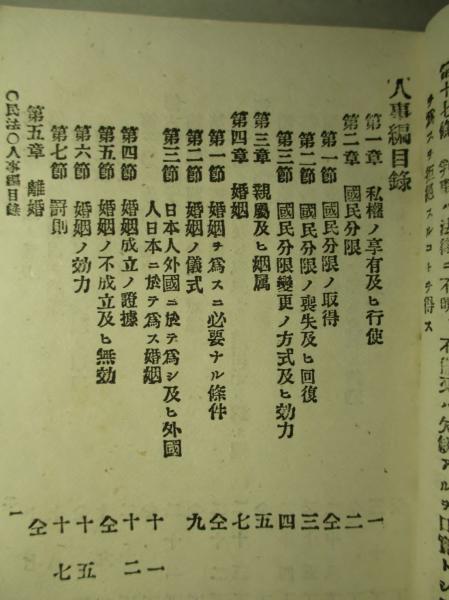 第十七條 判事ハ法律ニ不明、不備又ハ欠缺アルヲ口實トシ
テ裁判ヲ爲スヲ拒絶スルコトヲ得ス
人事編目錄
第一章 私權ノ享有及ヒ行使 一
第二章 國民分限 二
第一節 國民分限ノ取得 仝
第二節 國民分限ノ喪失及ヒ回復 三
第三節 國民分限變更ノ方式及ヒ効力 四
第三章 親屬及ヒ姻属 五
第四章 婚姻 七
第一節 婚姻ヲ爲スニ必要ナル條件 仝
第二節 婚姻ノ儀式 九
第三節 日本人外國ニ於テ爲シ及ヒ外國
人日本ニ於テ爲ス婚姻 十一
第四節 婚姻成立ノ證據 十二
第五節 婚姻ノ不成立及ヒ無効 仝
第六節 婚姻ノ効力 十五
第七節 罰則 十七
第五章 離婚 仝
〇民法〇人事編目錄 一